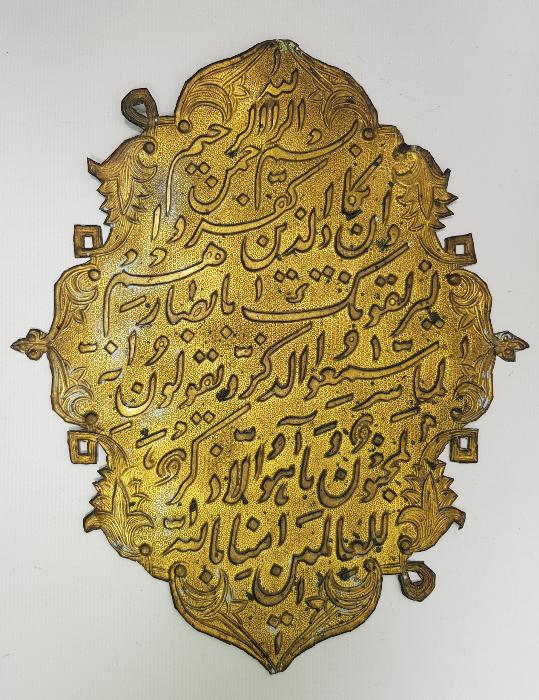 بسم الله الرحمن الرحیم
وان یکاد الذین کفروا
لیزلقونک بابصارهم
لما سمعوا الذکر و یقولون انه
لمجنون و ما هو الا ذکر
للعالمین امنا بالله